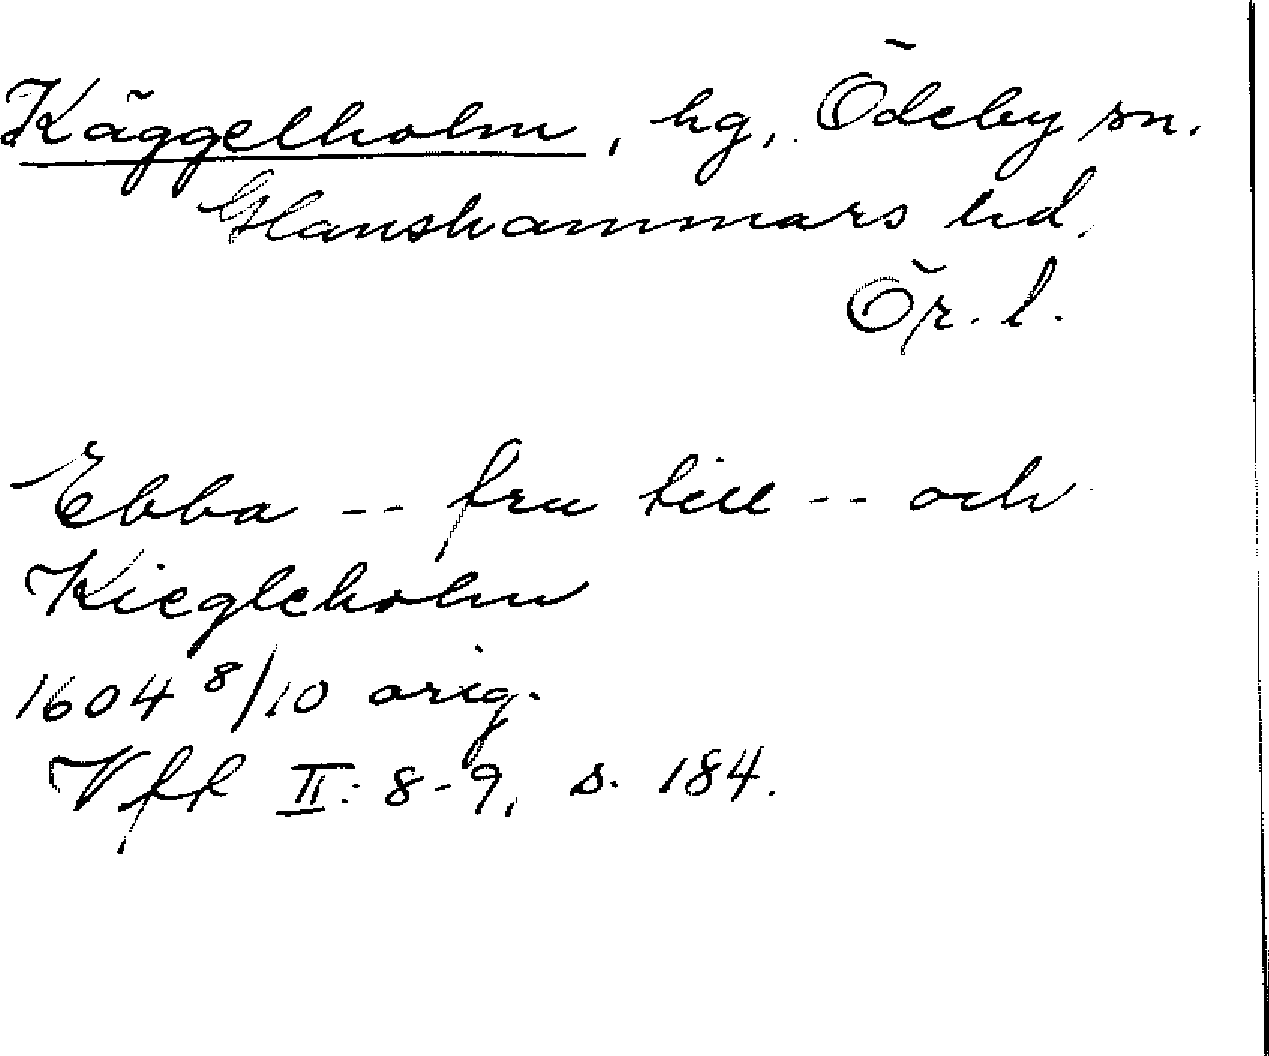 Käggelholm, hg, Ödeby sn.
Glanshammars hd.
Ör. l.
Ebba -- fru till -- och
Kiegleholm
1604 8/10 orig.
Vfk II: 8-9, s. 184.